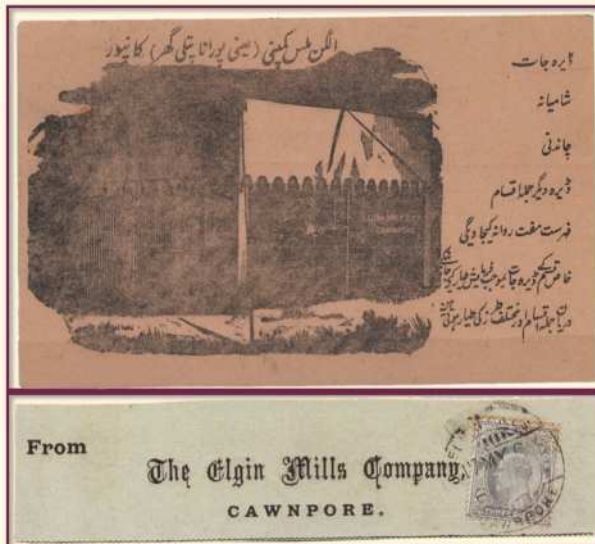 الگن ملس کمپنی (یعنی پورانا پتلی گھر) کانپور
ڈیرہ جات
شامیانہ
چاندنی
ڈیرہ دیگر جملہ اقسام
فہرست مفت روانہ کیجاویگی
خاص قسم کے ڈیرہ جات بموجب فرمایش طیار کیے
دریاں جملہ اقسام اور مختلف طرز کی طیار ہوتی
From
The Elgin Mills Company,
CAWNPORE.